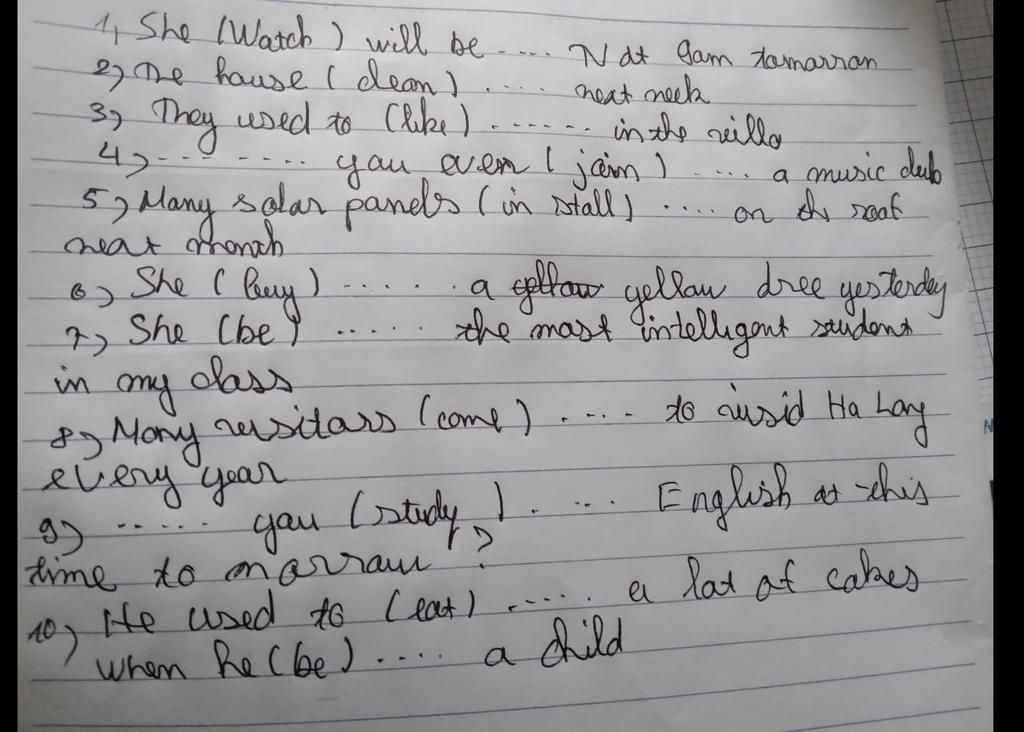 1, She (Watch) will be .... TV at 9am tomorrow
2, The house (clean) .... next week
3, They used to (like) ...... in the villa
4, ........ you ever (join) .... a music club
5, Many solar panels (in stall) .... on the roof
next month
6, She (buy) ...... a yellow yellow dree yesterday
7, She (be) ..... the most intelligent student
in my class
8, Many visitors (come) .... to visid Ha Long
every year
9) ..... you (study) .... English at this
time to morrow ?
10, He used to (eat) ..... a lot of cakes
when he (be) .... a child